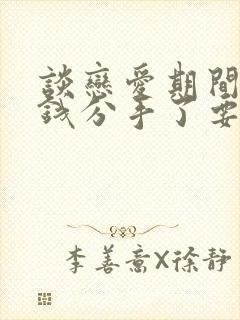 談戀愛期間
錢分手了要
李善喬X徐靜